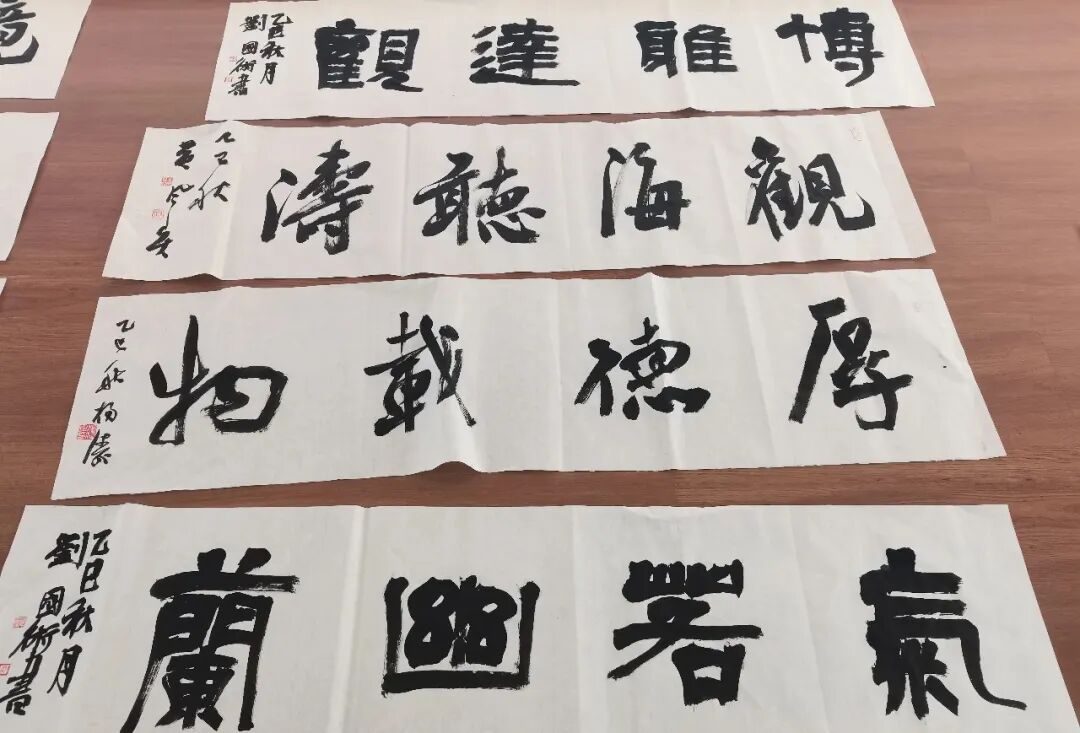 博雅達觀
乙巳秋月
劉國術書
觀海聽濤
乙巳秋
厚德載物
乙巳秋楊
氣若幽蘭
乙巳秋月
劉國術書